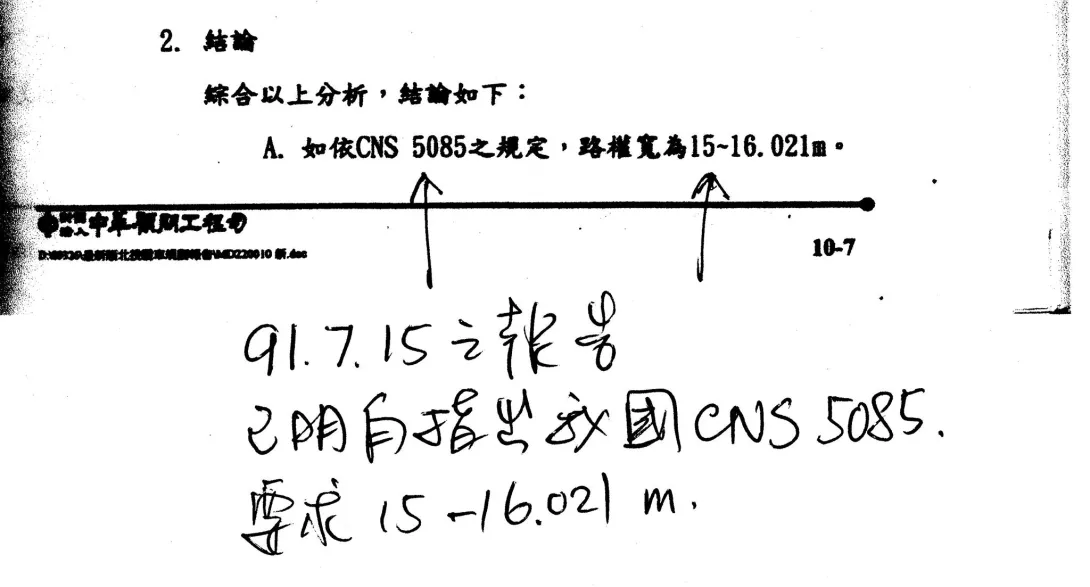 2. 結論
綜合以上分析，結論如下：
A. 如依CNS 5085之規定，路權寬為15~16.021m。
財團法人中華顧問工程司
10-7
91.7.15之報告
已明白指出我國CNS 5085.
要求 15-16.021 m.